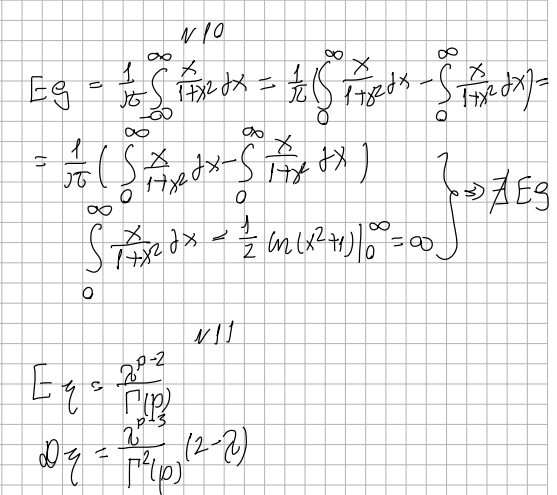 N10
Eξ = 1/π ∫_{-∞}^{∞} x/(1+x²) dx = 1/π (∫_0^∞ x/(1+x²) dx - ∫_0^∞ x/(1+x²) dx) =
= 1/π (∫_0^∞ x/(1+x²) dx - ∫_0^∞ x/(1+x²) dx)
∫_0^∞ x/(1+x²) dx = 1/2 ln(x²+1)|_0^∞ = ∞ } => ∄ Eξ
N11
Eη = λ^{p-2}/Γ(p)
Dη = λ^{p-3}/Γ²(p) (2-λ)